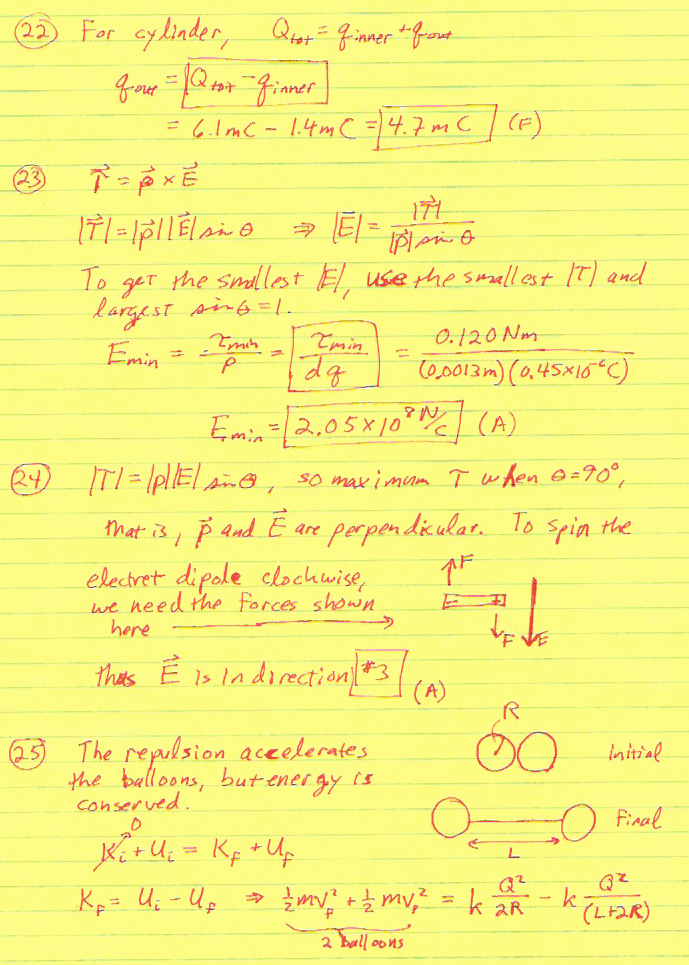 (22) For cylinder, Q_tot = q_inner + q_out
q_out = Q_tot - q_inner
= 6.1 mC - 1.4 mC = 4.7 mC (F)
(23) τ⃗ = p⃗ × E⃗
|τ⃗| = |p⃗||E⃗| sin θ ⇒ |E⃗| = |τ⃗| / |p⃗| sin θ
To get the smallest |E|, use the smallest |τ| and
largest sin θ = 1.
E_min = τ_min / p = τ_min / dq = 0.120 Nm / (0.0013 m)(0.45×10⁻⁶C)
E_min = 2.05 × 10⁸ N/C (A)
(24) |τ| = |p||E| sin θ, so maximum τ when θ = 90°,
that is, p⃗ and E⃗ are perpendicular. To spin the
electret dipole clockwise,
we need the forces shown
here
F
- +
F E
thus E⃗ is in direction #3 (A)
R
(25) The repulsion accelerates initial
the balloons, but energy is
conserved.
Final
L
0
K_i + U_i = K_f + U_f
K_f = U_i - U_f ⇒ ½mv_f² + ½mv_f² = k Q² / 2R - k Q² / (L+2R)
2 balloons